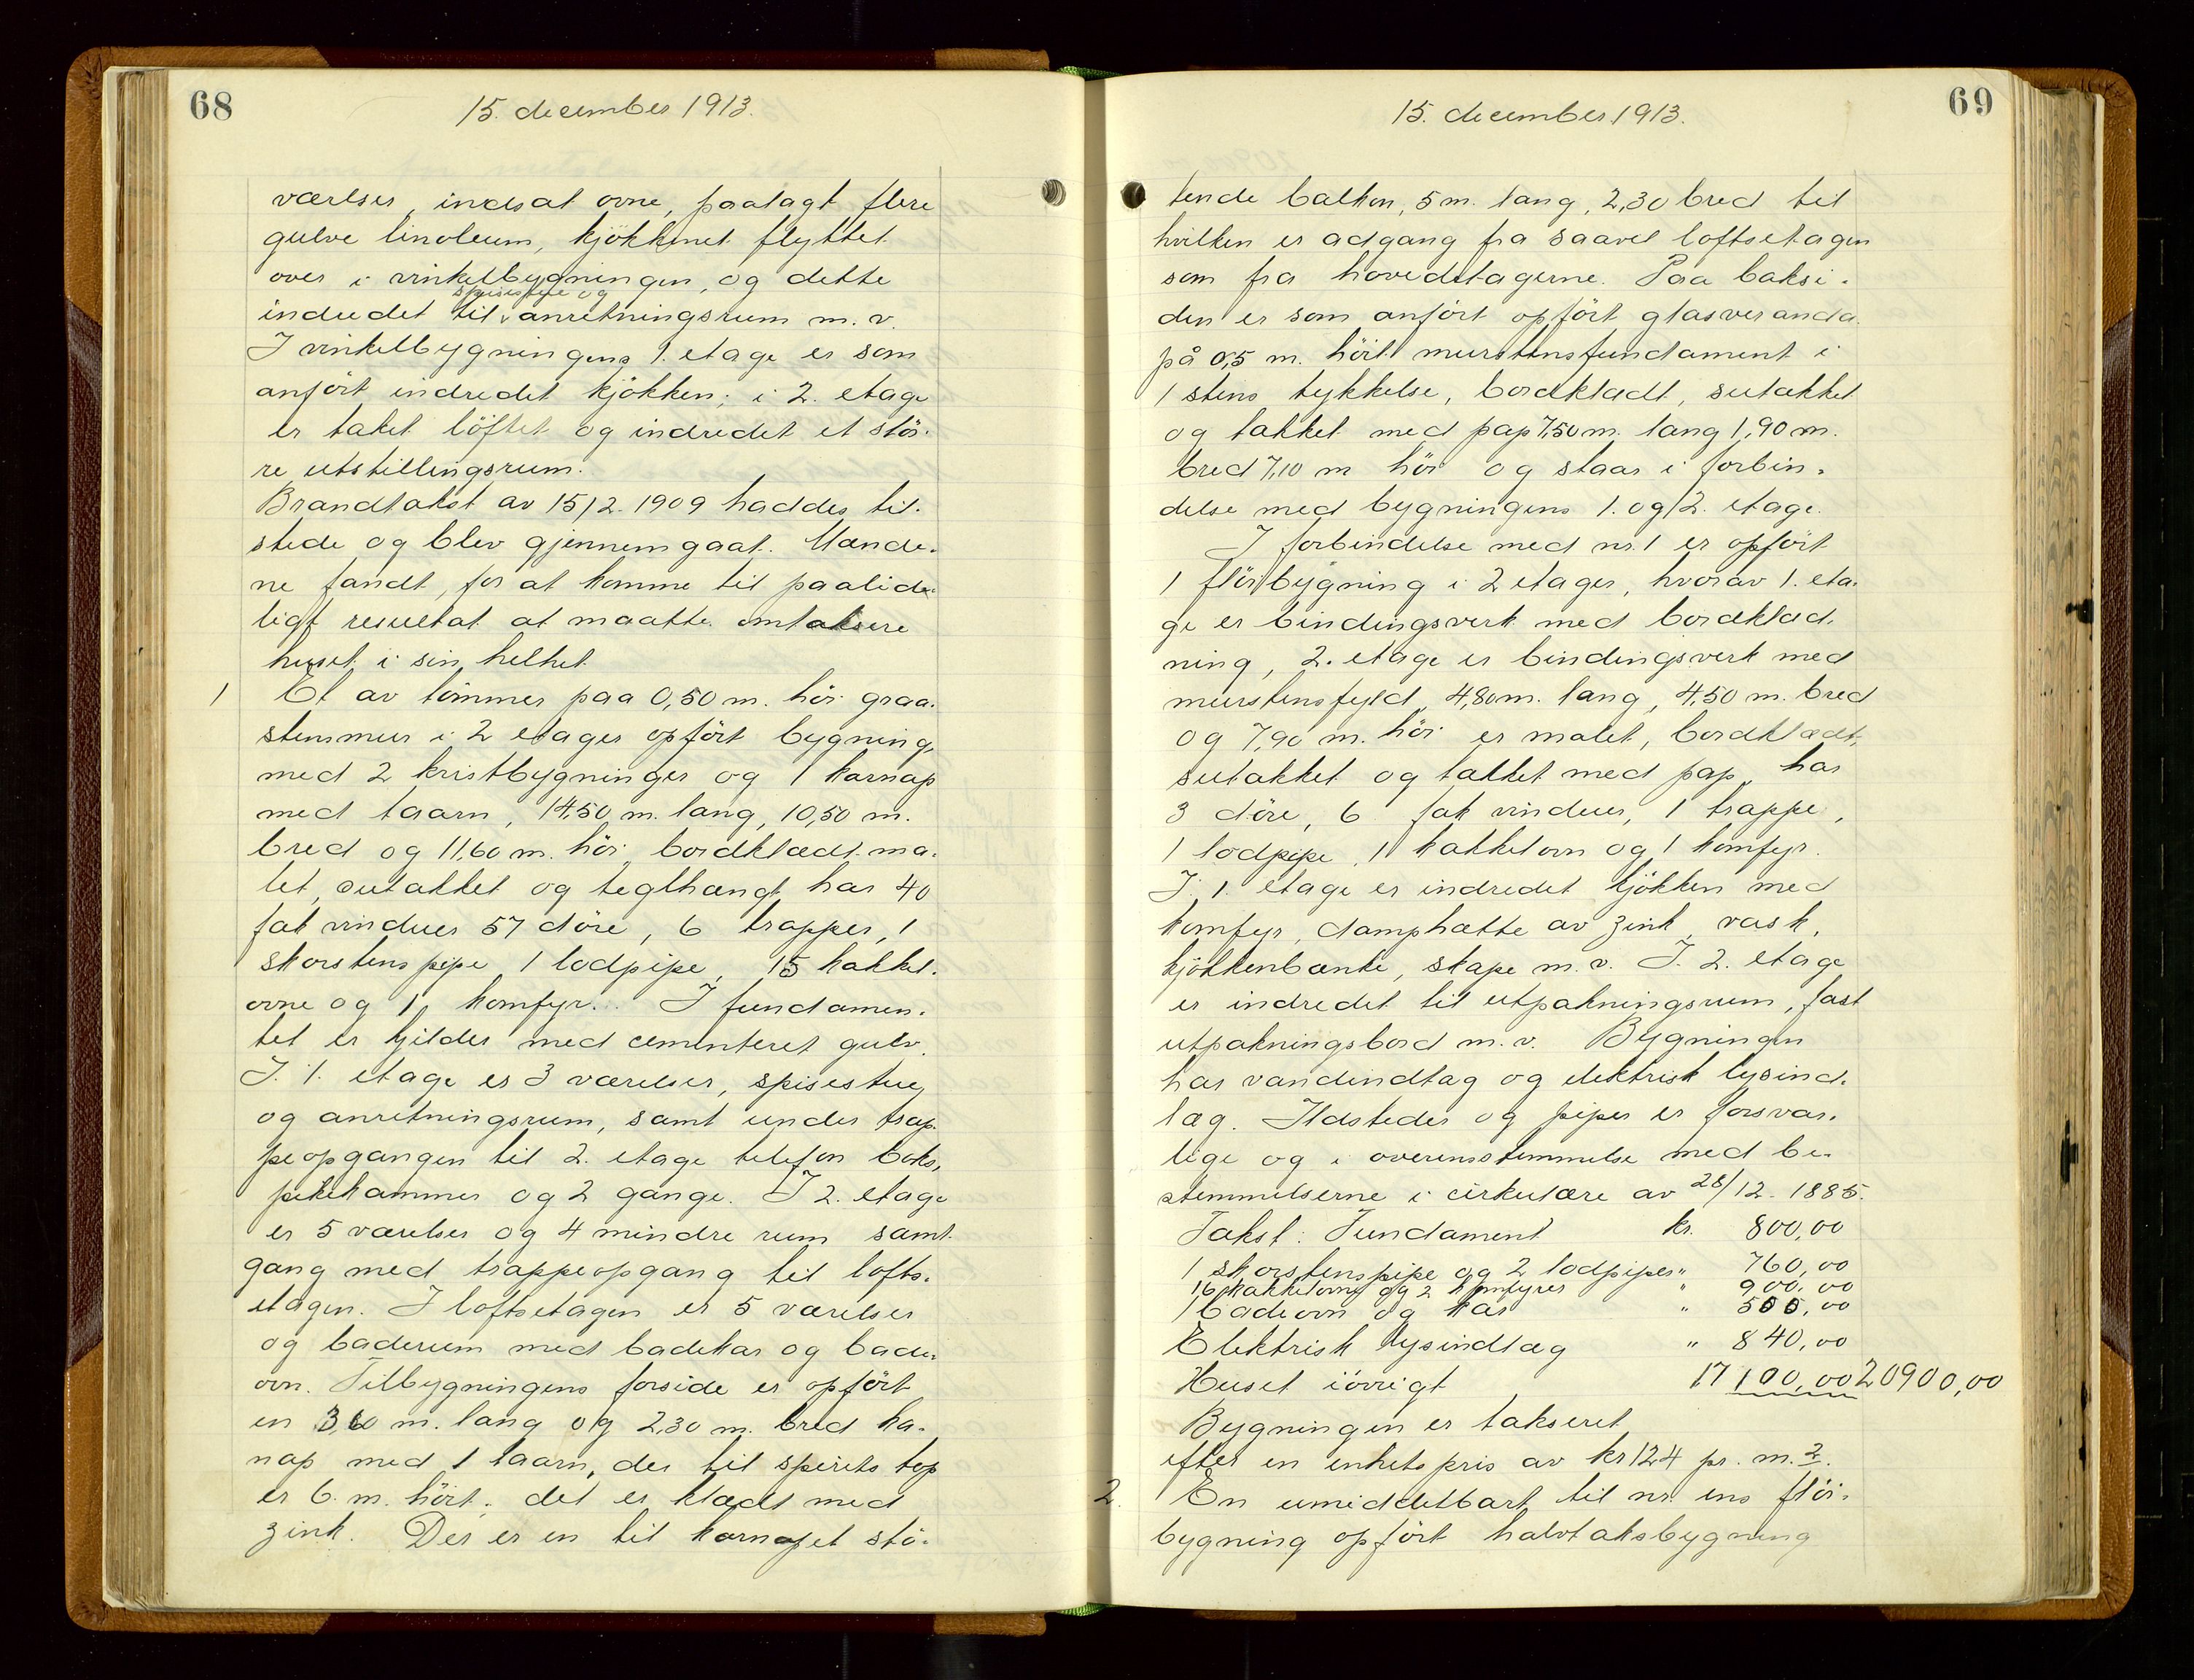 68
15. december 1913.
værelser, indsat ovne, paalagt flere
gulve linoleum, kjökkenet flyttet
over i vinkelbygningen, og dette
spisestue og
indredet til anretningsrum m.v.
I vinkelbygningens 1. etage er som
anfört indredet kjökken; i 2. etage
er taket löftet og indredet et stör-
re utstillingsrum.
Brandtakst av 15/2. 1909 haddes til-
stede og blev gjennemgaat. Mænde-
ne fandt, for at komme til paalide-
ligt resultat at maatte omtaksere
huset i sin helhet.
1 Et av tömmer paa 0,50 m. höi graa-
stensmur i 2 etager opfört bygning,
med 2 kvistbygninger og 1 karnap
med taarn, 14,50 m. lang, 10,50 m.
bred og 11,60 m. höi, bordklædt ma-
let, sutakket og teglhængt har 40
fak vinduer 57 döre, 6 trapper, 1
skorstenspipe, 1 lodpipe, 15 kakkel-
ovne og 1 komfyr. I fundamen-
tet er kjelder med cementeret gulv.
I 1. etage er 3 værelser, spisestue
og anretningsrum, samt under trap-
peopgangen til 2. etage telefon boks,
pikekammer og 2 gange. I 2. etage
er 5 værelser og 4 mindre rum samt
gang med trappeopgang til lofts-
etagen. I loftsetagen er 5 værelser
og baderum med badekar og bade-
ovn. Til bygningens forside er opfört
en 3,60 m. lang og 2,30 m. bred ka-
nap med 1 taarn, der til spirets top
er 6 m. höit; det er klædt med
zink. Der er en til karnapet stö-
69
15. december 1913.
tende balkon, 5 m. lang, 2,30 bred til
hvilken er adgang fra saavel loftsetagen
som fra hovedetagerne. Paa baksi-
den er som anfört opfört glasveranda
på 0,5 m. höit murstensfundament i
1 stens tykkelse, bordklædt, sutækket
og tækket med pap 7,50 m. lang 1,90 m.
bred 7,10 m höi og staar i forbin-
delse med bygningens 1. og 2. etage.
I forbindelse med nr. 1 er opfört
1 flöibygning i 2 etager, hvorav 1. eta-
ge er bindingsverk med bordklæd-
ning, 2. etage er bindingsverk med
murstensfyld, 4,80 m. lang, 4,50 m. bred
og 7,90 m. höi er malet, bordklædt,
sutakket og takket med pap, har
3 döre, 6 fak vinduer, 1 trappe,
1 lodpipe, 1 kakkelovn og 1 komfyr.
I 1. etage er indredet kjökken med
komfyr, damphætte av zink, vask,
kjökkenbænke, skape m.v. I 2. etage
er indredet til utpakningsrum, fast
utpakningsbord m.v. Bygningen
har vandindtag og elektrisk lysind-
læg. Ildsteder og piper er forsvar-
lige og i overensstemmelse med be-
stemmelserne i cirkulære av 28/12. 1885.
Takst: Fundament kr. 800,00
1 skorstenspipe og 2 lodpiper " 760,00
16 kakkelovne og 2 komfyrer " 900,00
1 badeovn og kar " 500,00
Elektrisk lysindlæg " 840,00
Huset iövrigt 17100,00 20900,00
Bygningen er takseret
efter en enhetspris av kr 124 pr. m.2.
2. En umiddelbart til nr. ens flöi-
bygning opfört halvtaksbygning